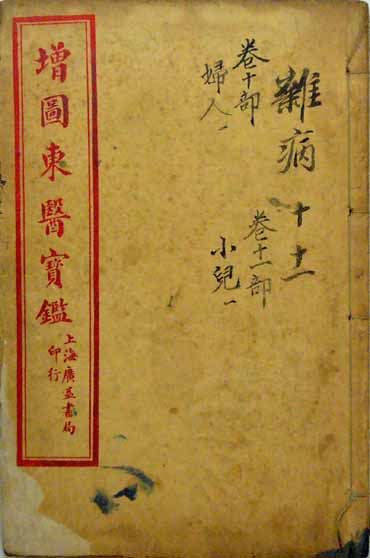 雜病 十 十一
卷十部
婦人 一
卷十一部
小兒 一
增圖東醫寶鑑
上海廣益書局
印行